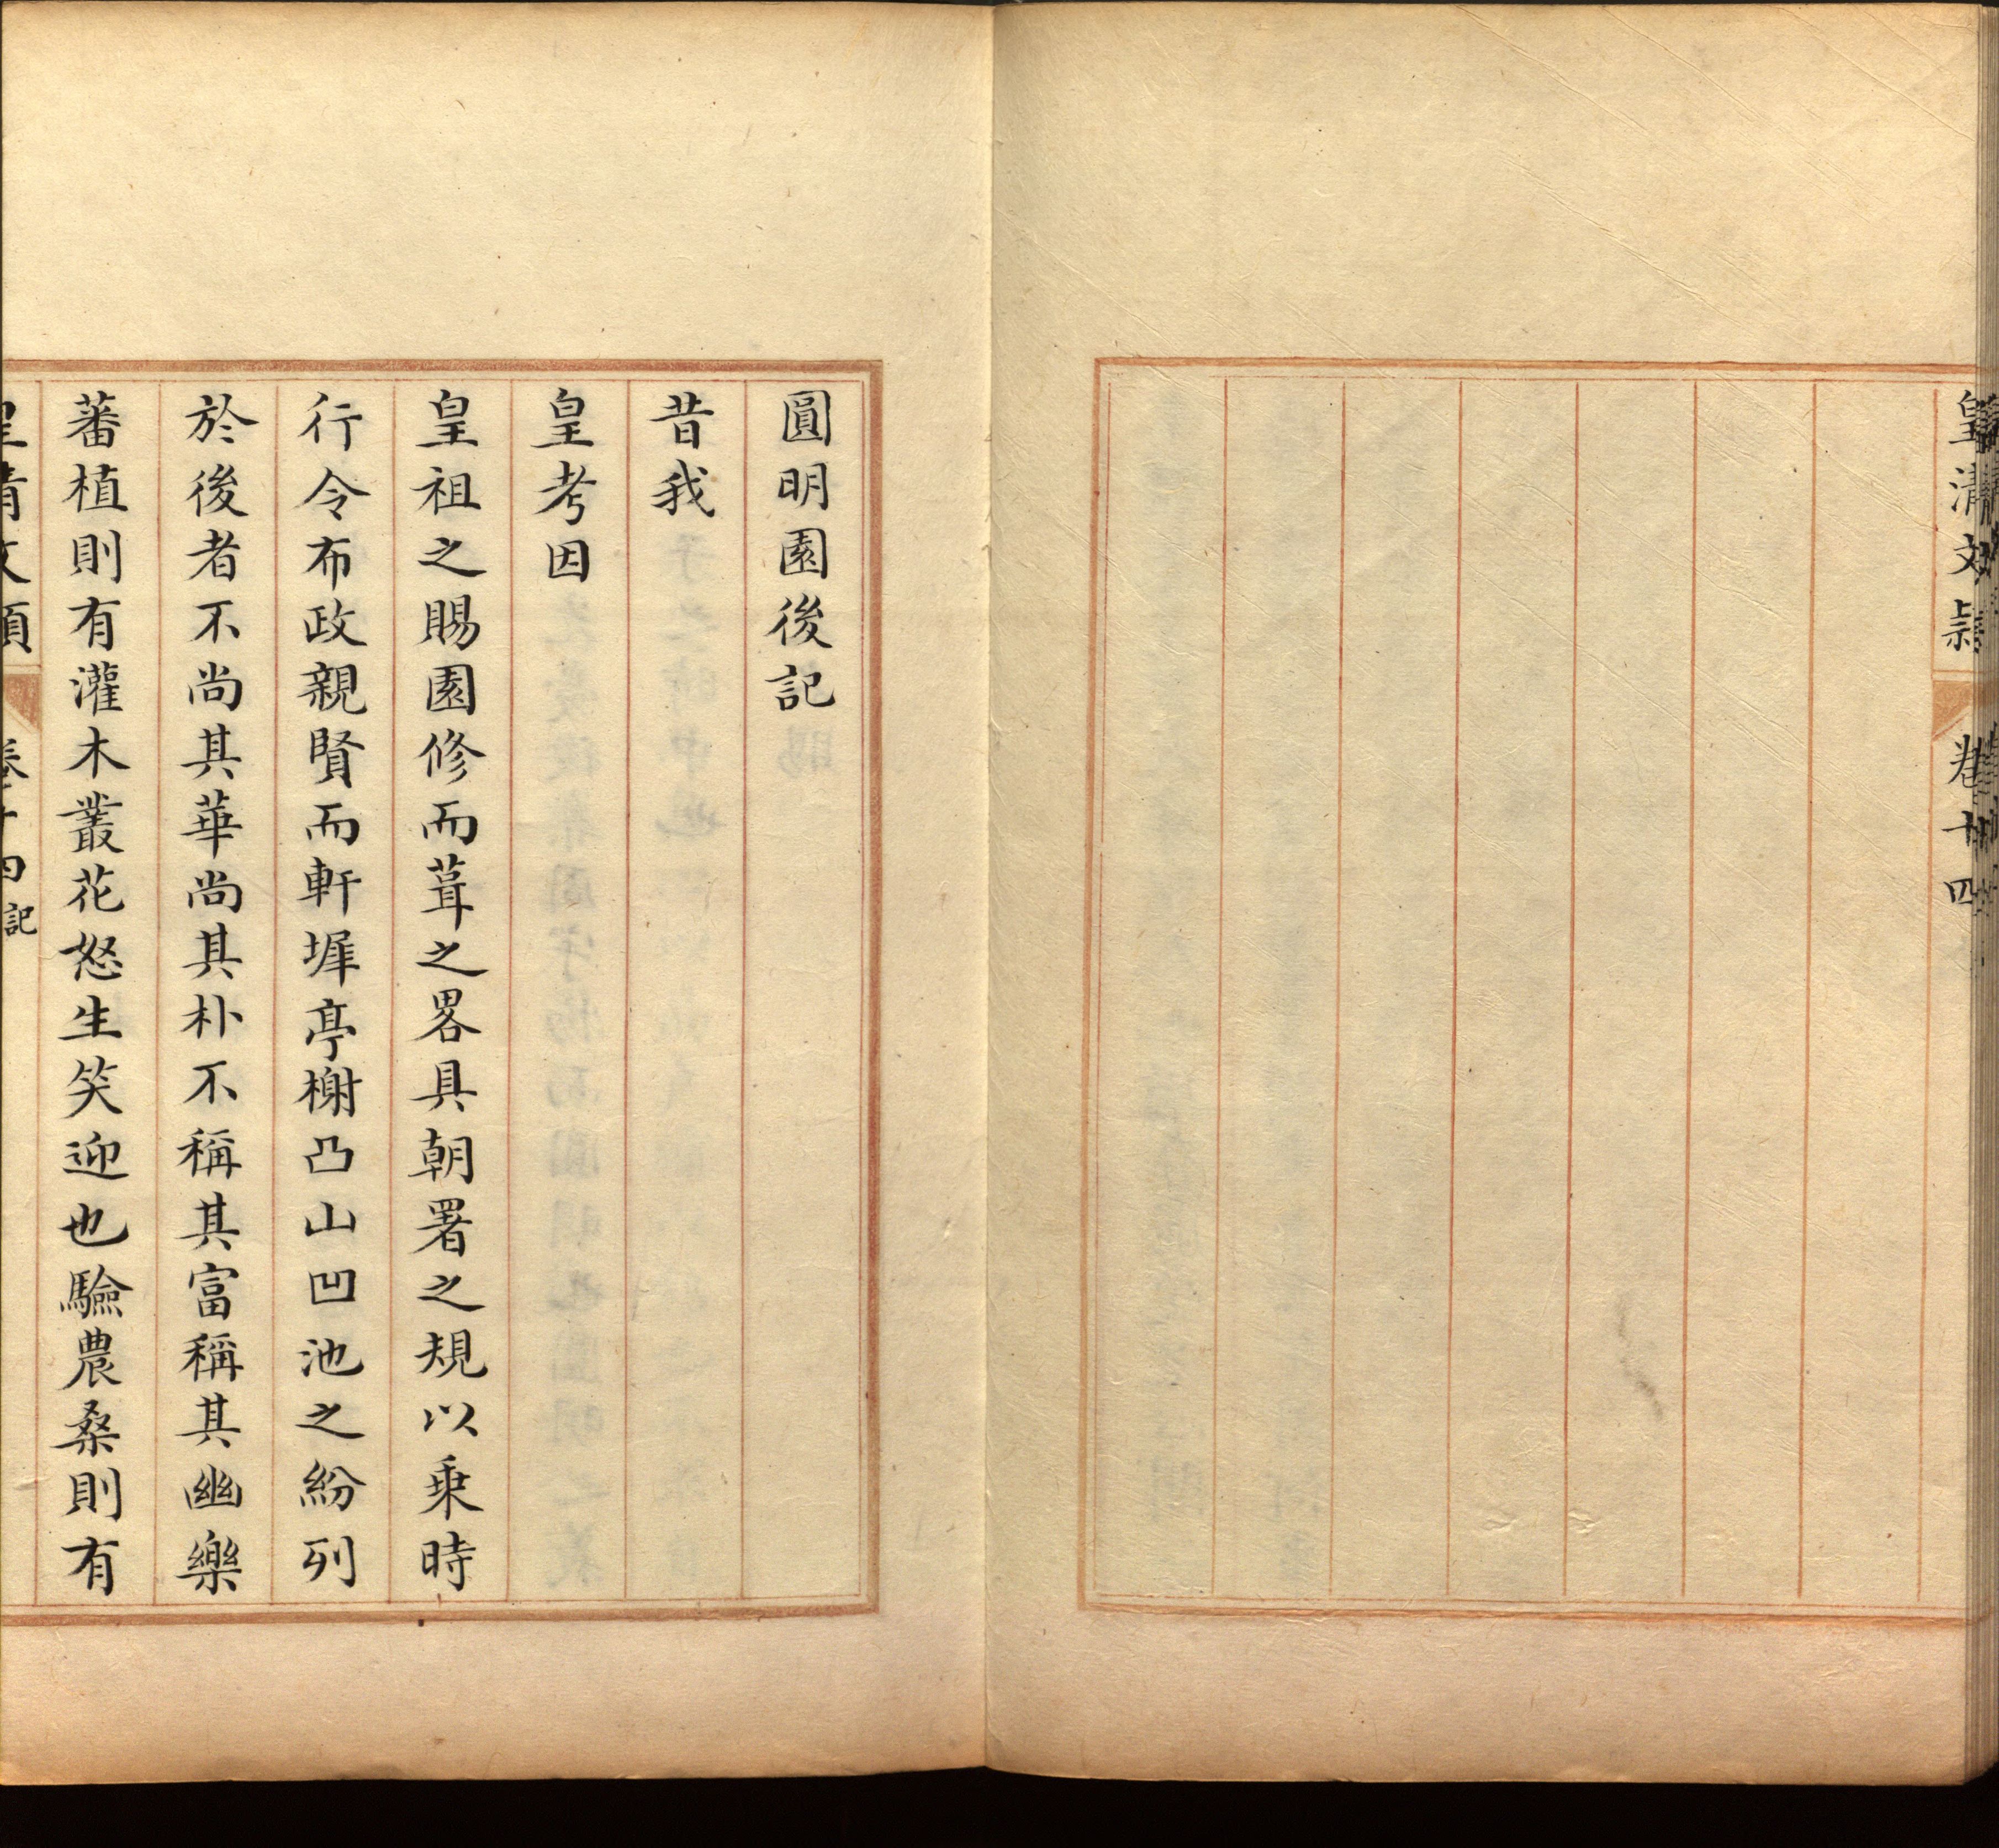 皇清文穎 卷十四
圓明園後記
昔我
皇考因
皇祖之賜園修而葺之畧具朝署之規以乗時
行令布政親賢而軒墀亭榭凸山凹池之紛列
於後者不尚其華尚其朴不稱其富稱其幽樂
蕃植則有灌木叢花怒生笑迎也驗農桑則有
皇清文穎 卷十四 記